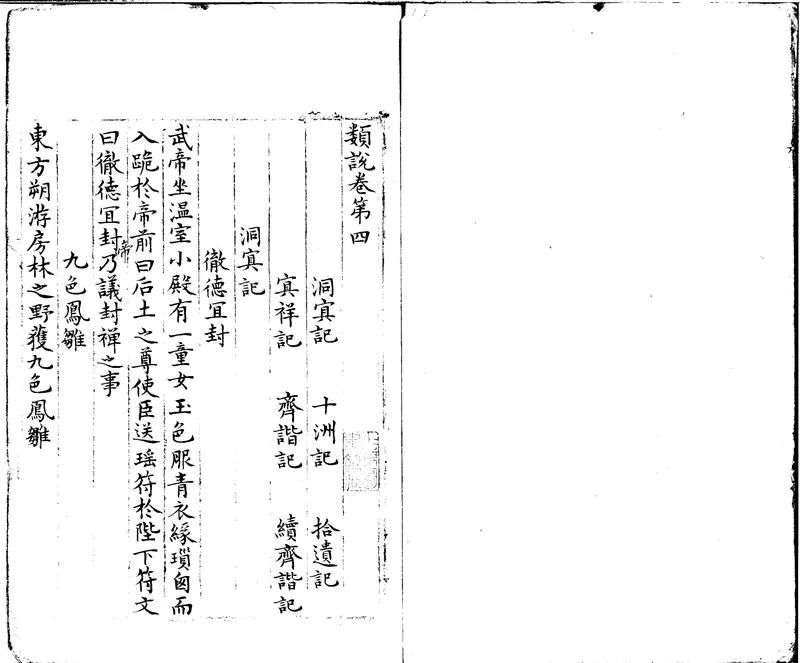 類說卷第四
洞寘記 十洲記 拾遺記
寘祥記 齊諧記 續齊諧記
洞寘記
徹德冝封
武帝坐温室小殿有一童女玉色服青衣緣瑣囪而
入跪於帝前曰后土之尊使臣送瑶符於陛下符文
曰徹德冝封帝乃議封禅之事
九色鳳雛
東方朔游房林之野獲九色鳳雛